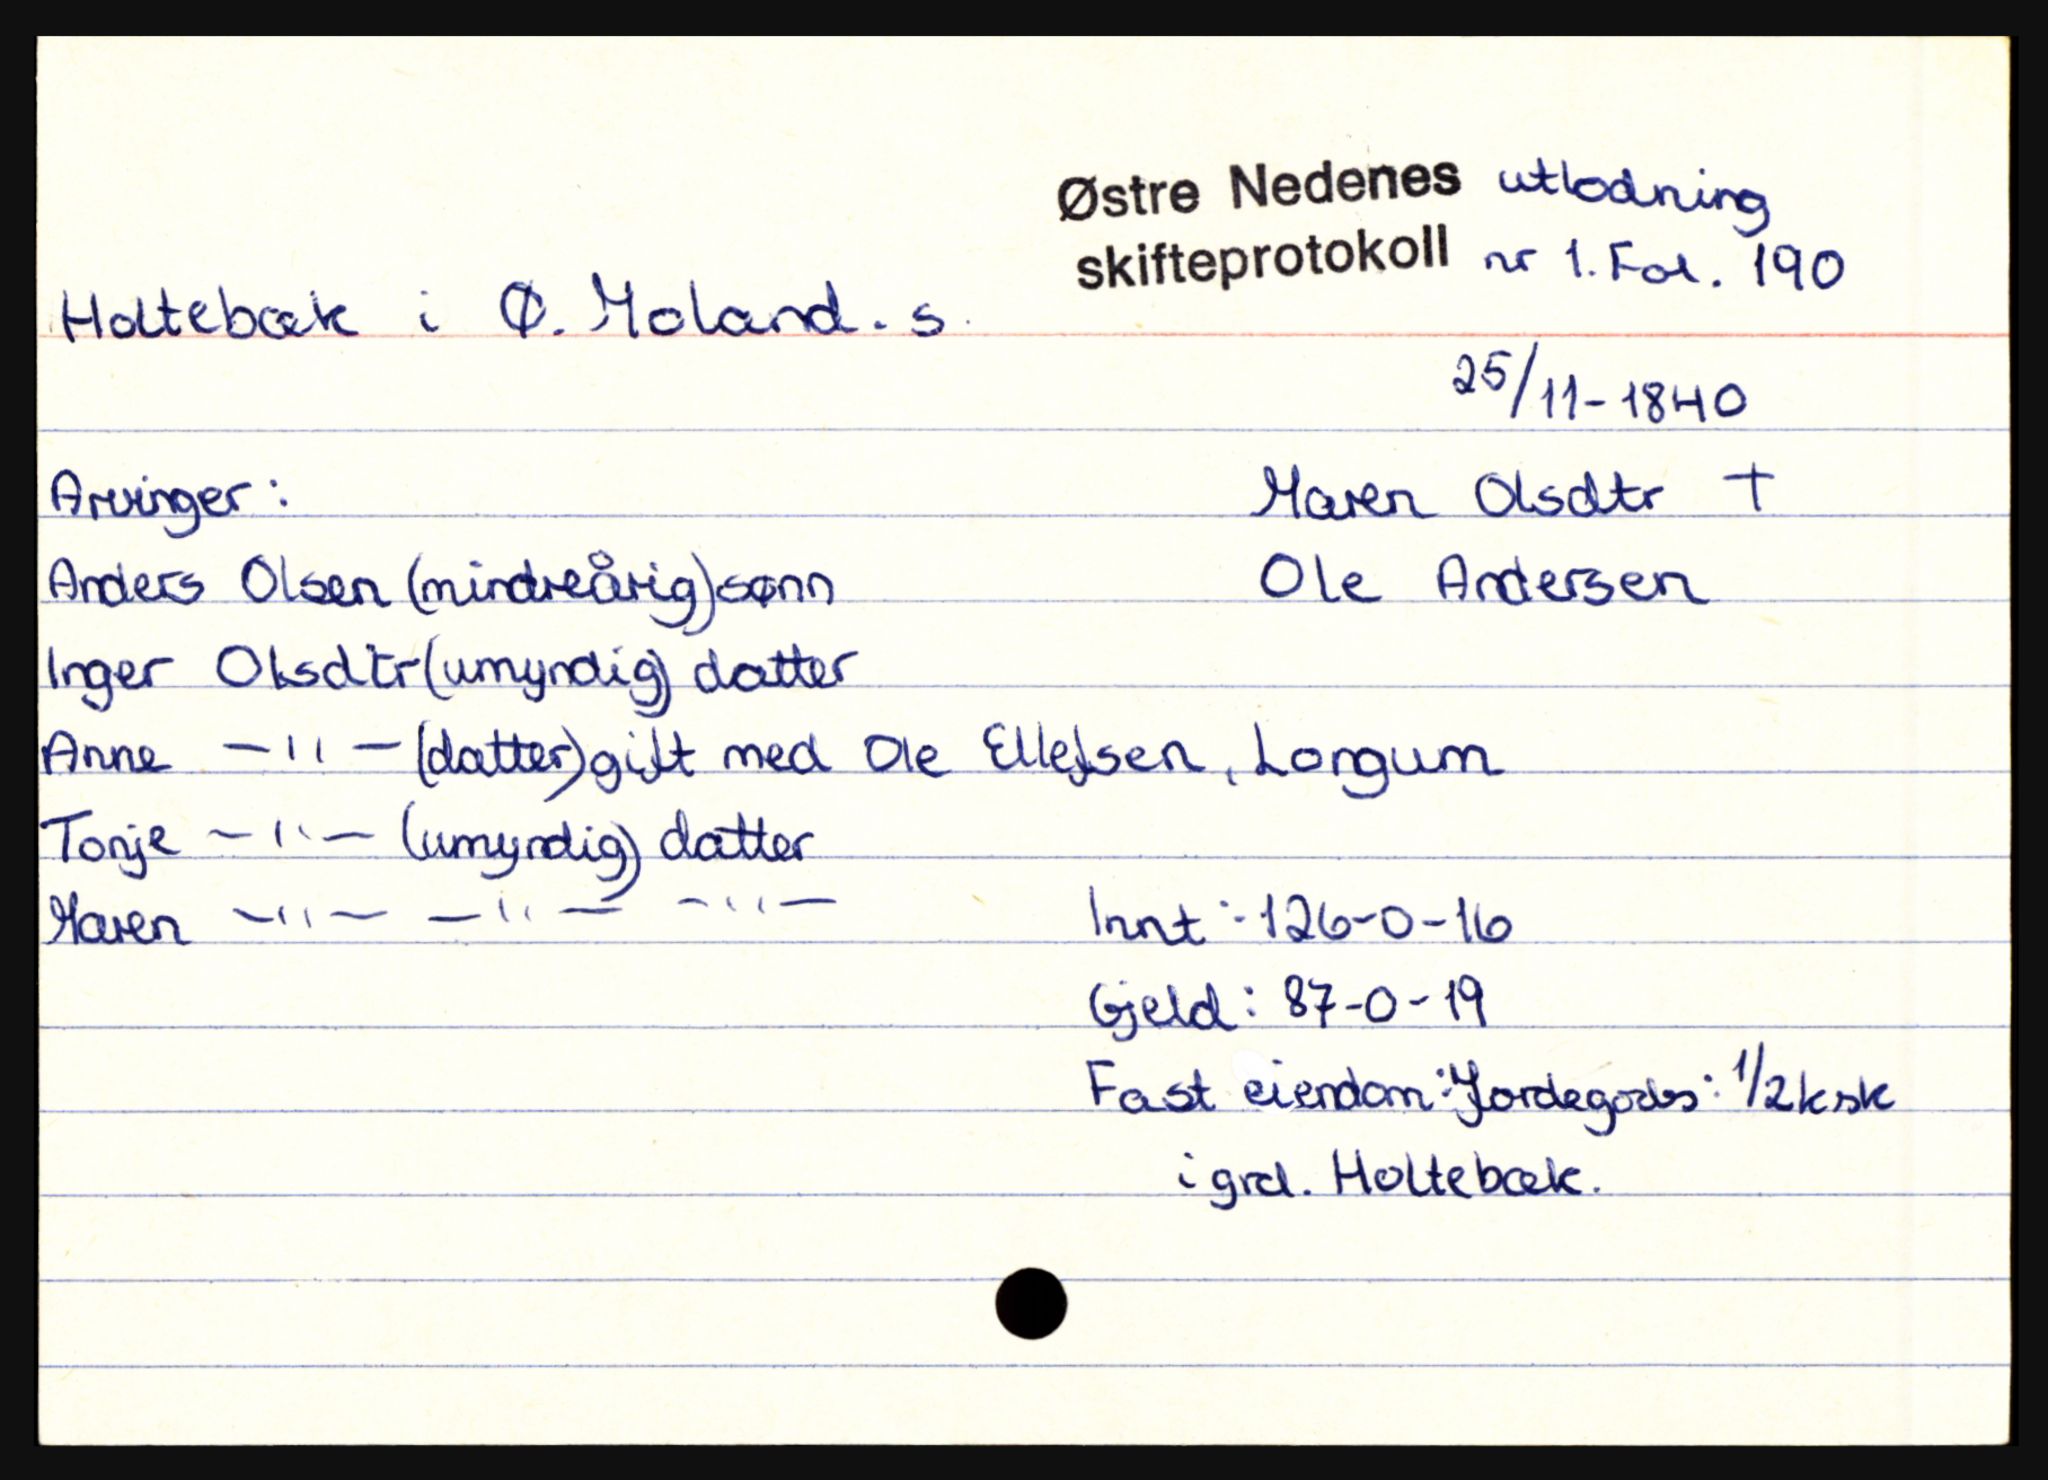 Østre Nedenes utlodning
skifteprotokoll nr 1. Fol. 190
Holtebæk i Ø. Moland. s.
25/11-1840
Arvinger: Maren Olsdtr †
Anders Olsen (mindreårig) sønn Ole Andersen
Inger Olsdtr (umyndig) datter
Anne —"— (datter) gift med Ole Ellefsen, Longum
Tonje —"— (umyndig) datter
Maren —"— —"— —"— Innt:-126-0-16
Gjeld: 87-0-19
Fast eiendom: Jordegods: 1/2 k sk
i grd. Holtebæk.